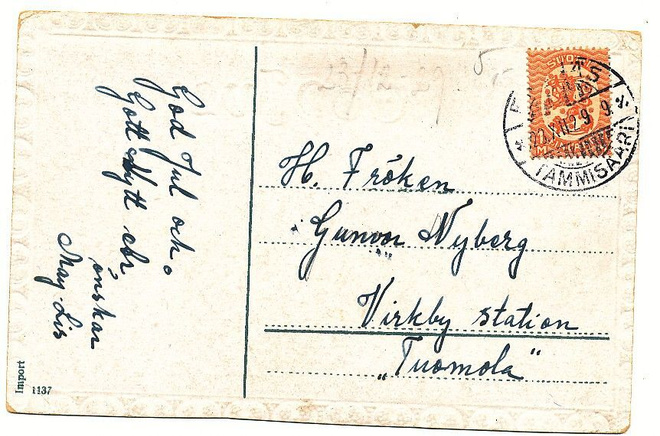 God Jul och
Gott Nytt år
önskar
May-Lis
H. Fröken
Gunvor Nyberg
Virkby station
„Tuomola"
TAMMISAARI
Import
1137